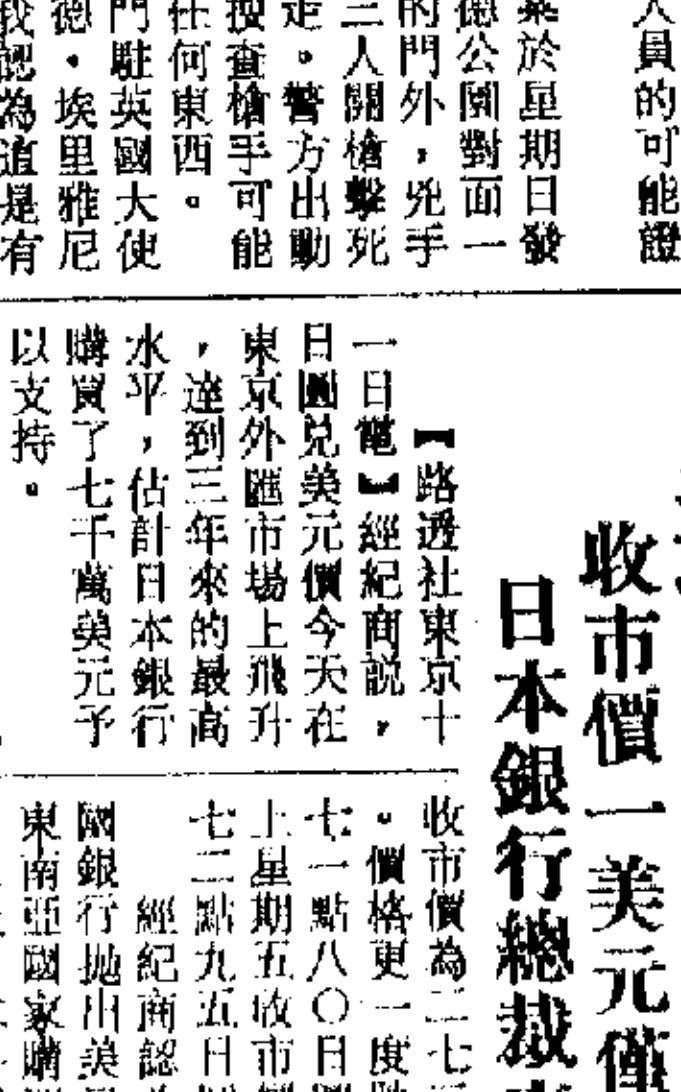 人員的可能證
案於星期日發
德公園對面一
的門外，兇手
三人開槍擊死
走。警方出動
搜查槍手可能
任何東西。
門駐英國大使
德・埃里雅尼
我認為這是有
收市價一美元僅
日本銀行總裁
【路透社東京十
一日電】經紀商說，
日圓兌美元價今天在
東京外匯市場上飛升
，達到三年來的最高
水平，估計日本銀行
購買了七千萬美元予
以支持。
收市價為二七
。價格更一度
七一點八〇日
上星期五收市
七二點九五日
經紀商認
國銀行拋出美
東南亞國家購